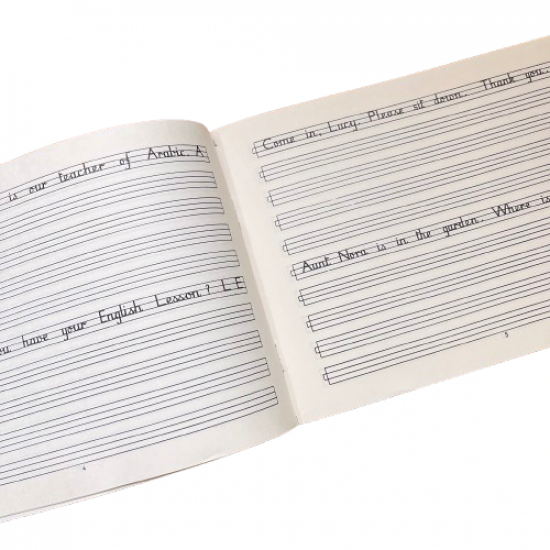 is our teacher of Arabic. A
ou have your English Lesson? L E
4
Come in, Lucy. Please sit down. Thank you.
Aunt Nora is in the garden. Where is
5